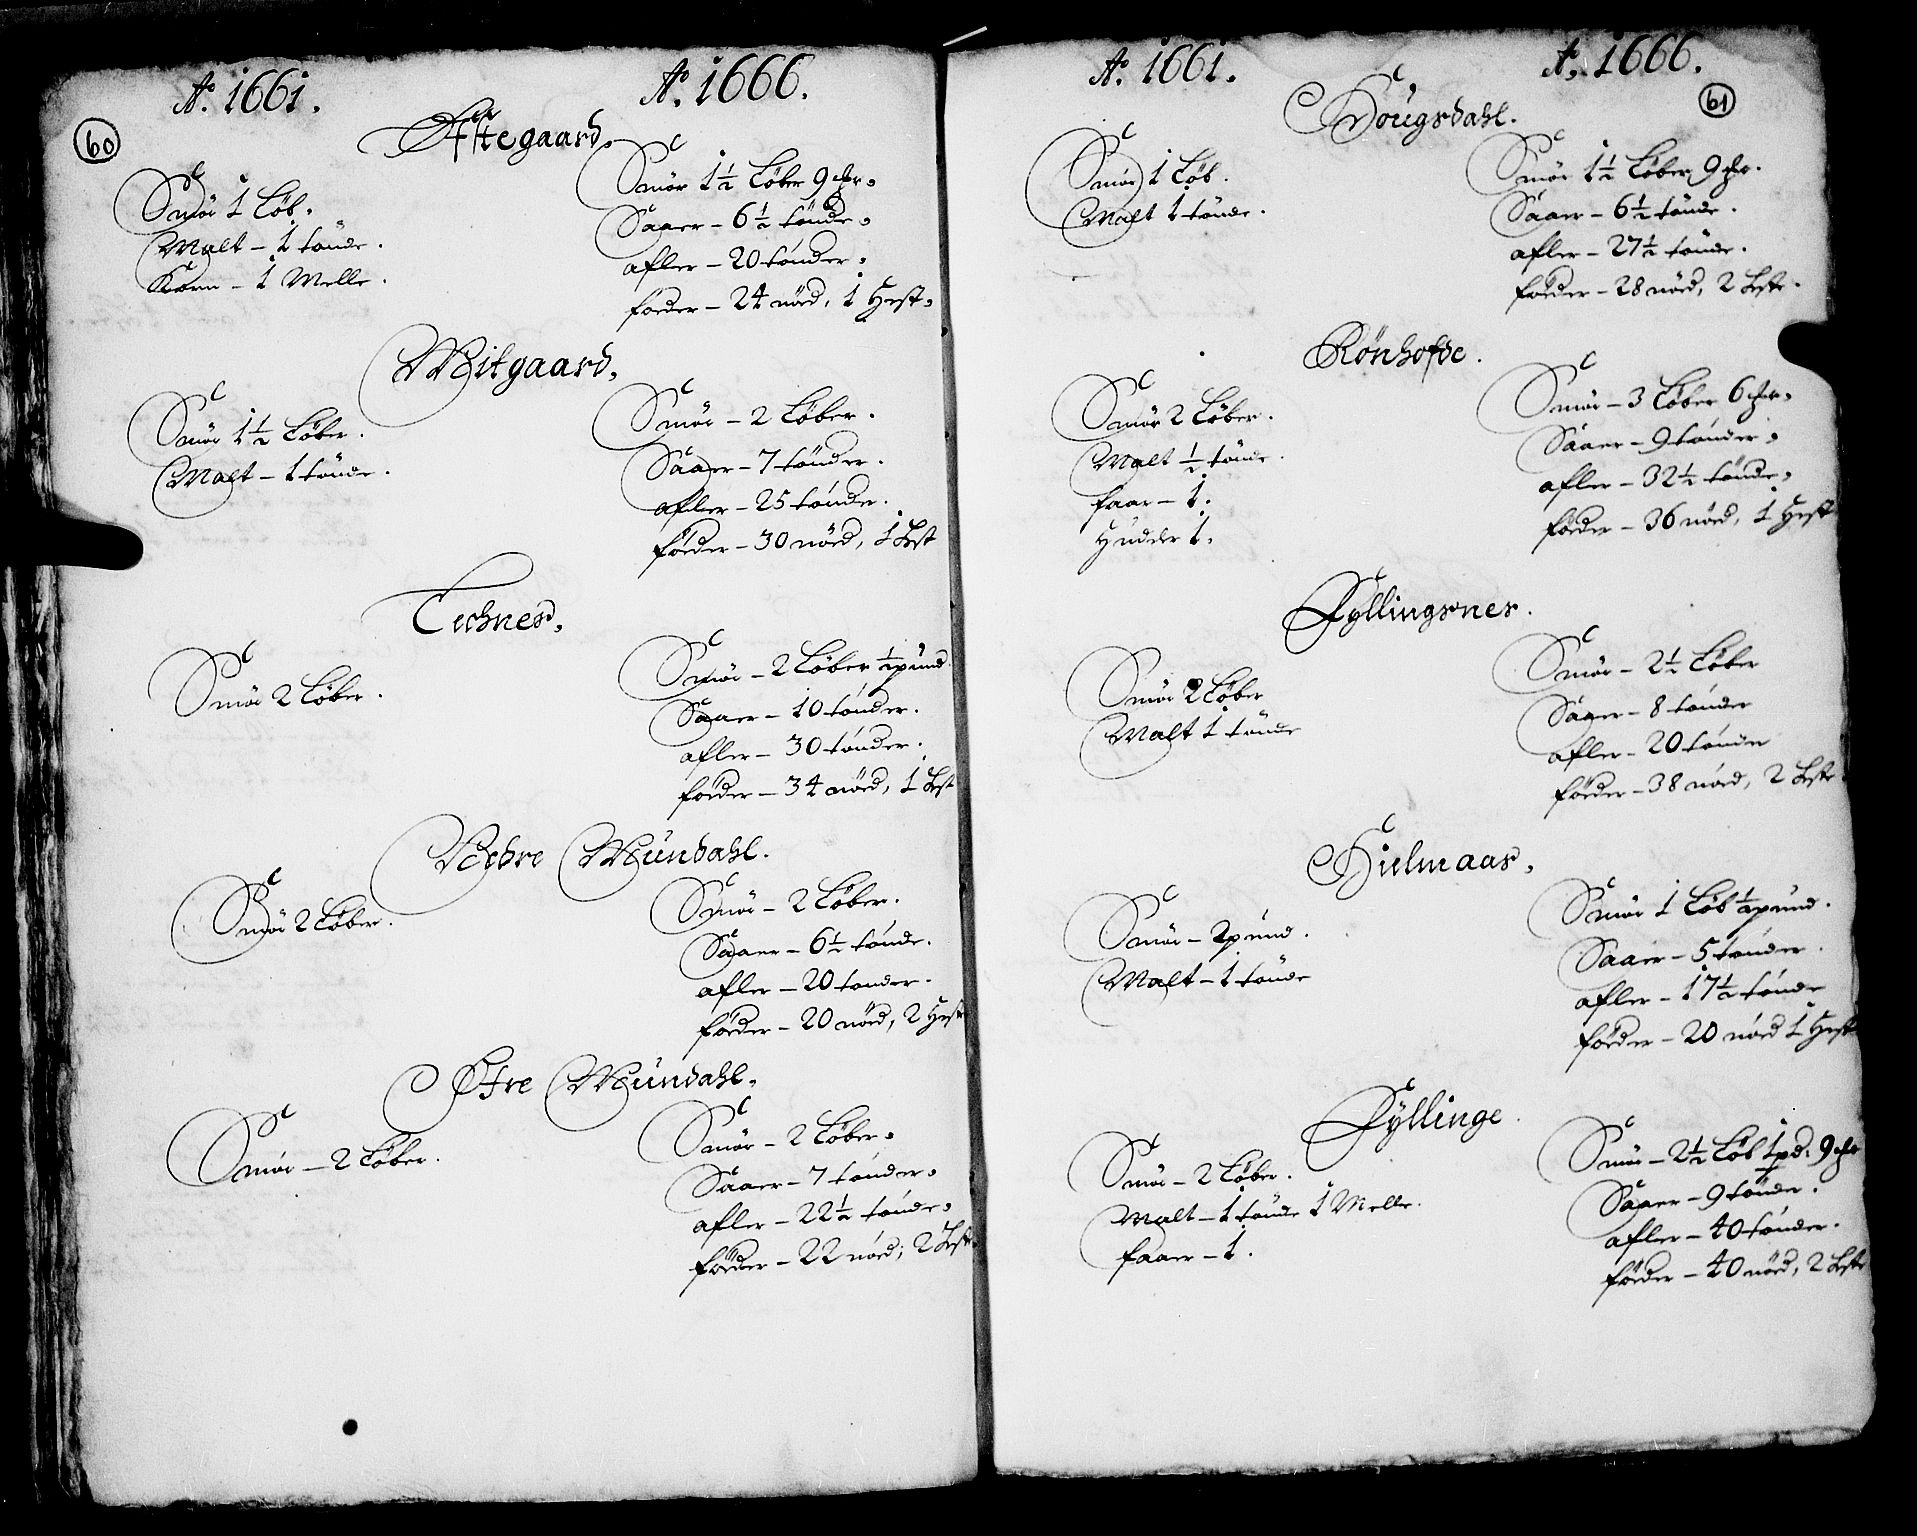 60
Ao. 1661.
Ao. 1666.
Aftegaard.
Smör 1 Löb.
Malt – 1 tönde.
Korn – 1 Melle.
Smör 1½ Löber 9 mr.
Saaer – 6½ tönde.
afler – 20 tönder.
föeder – 24 nöed, 1 Hest.
Mitgaard.
Smör 1½ Löber.
Malt – 1 tönde.
Smör – 2 Löber.
Saaer – 7 tönder.
afler – 25 tönder.
föeder – 30 nöed, 1 Hest
Echnes.
Smör 2 Löber.
Smör – 2 Löber ½ pund.
Saaer – 10 tönder.
afler – 30 tönder.
föeder – 34 nöed, 1 Hest
Nedre Mündahl.
Smör 2 Löber.
Smör – 2 Löber.
Saaer – 6½ tönde.
afler – 20 tonder.
föeder – 20 nöed, 2 Heste
Øfre Mündahl.
Smör – 2 Löber.
Smör – 2 Löber.
Saaer – 7 tönder.
afler – 22½ tönde.
föeder – 22 nöed, 2 Heste
61
Ao. 1661.
Ao. 1666.
Hougsdahl.
Smör 1 Löb.
Malt 1 tönde.
Smör 1½ Löber 9 mr.
Saaer – 6½ tönde.
afler – 27½ tönde.
föeder – 28 nöed, 2 Heste.
Rönhofde.
Smör 2 Löber.
Malt ½ tönde.
faar – 1.
Hudder 1.
Smör – 3 Löber 6 mr.
Saaer – 9 tönder.
afler – 32½ tönde.
föeder – 36 nöed, 1 Hest
Fyllingsnes.
Smör 2 Löber
Malt 1 tönde
Smör – 2½ Löber
Saaer – 8 tönder
afler – 20 tönder
föeder – 38 nöed, 2 Heste
Hielmaas.
Smör – 2 pund.
Malt – 1 tönde
Smör 1 Löb ½ pund.
Saaer – 5 tönder.
afler – 17½ tönde
föeder – 20 nöed 1 Hest
Fyllinge.
Smör – 2 Löber.
Malt – 1 tönde 1 Melle.
faaer – 1.
Smör – 2½ Löb 1 pd. 9 mr
Saaer – 9 tönder.
afler – 40 tönder.
föeder – 40 nöed, 2 Heste